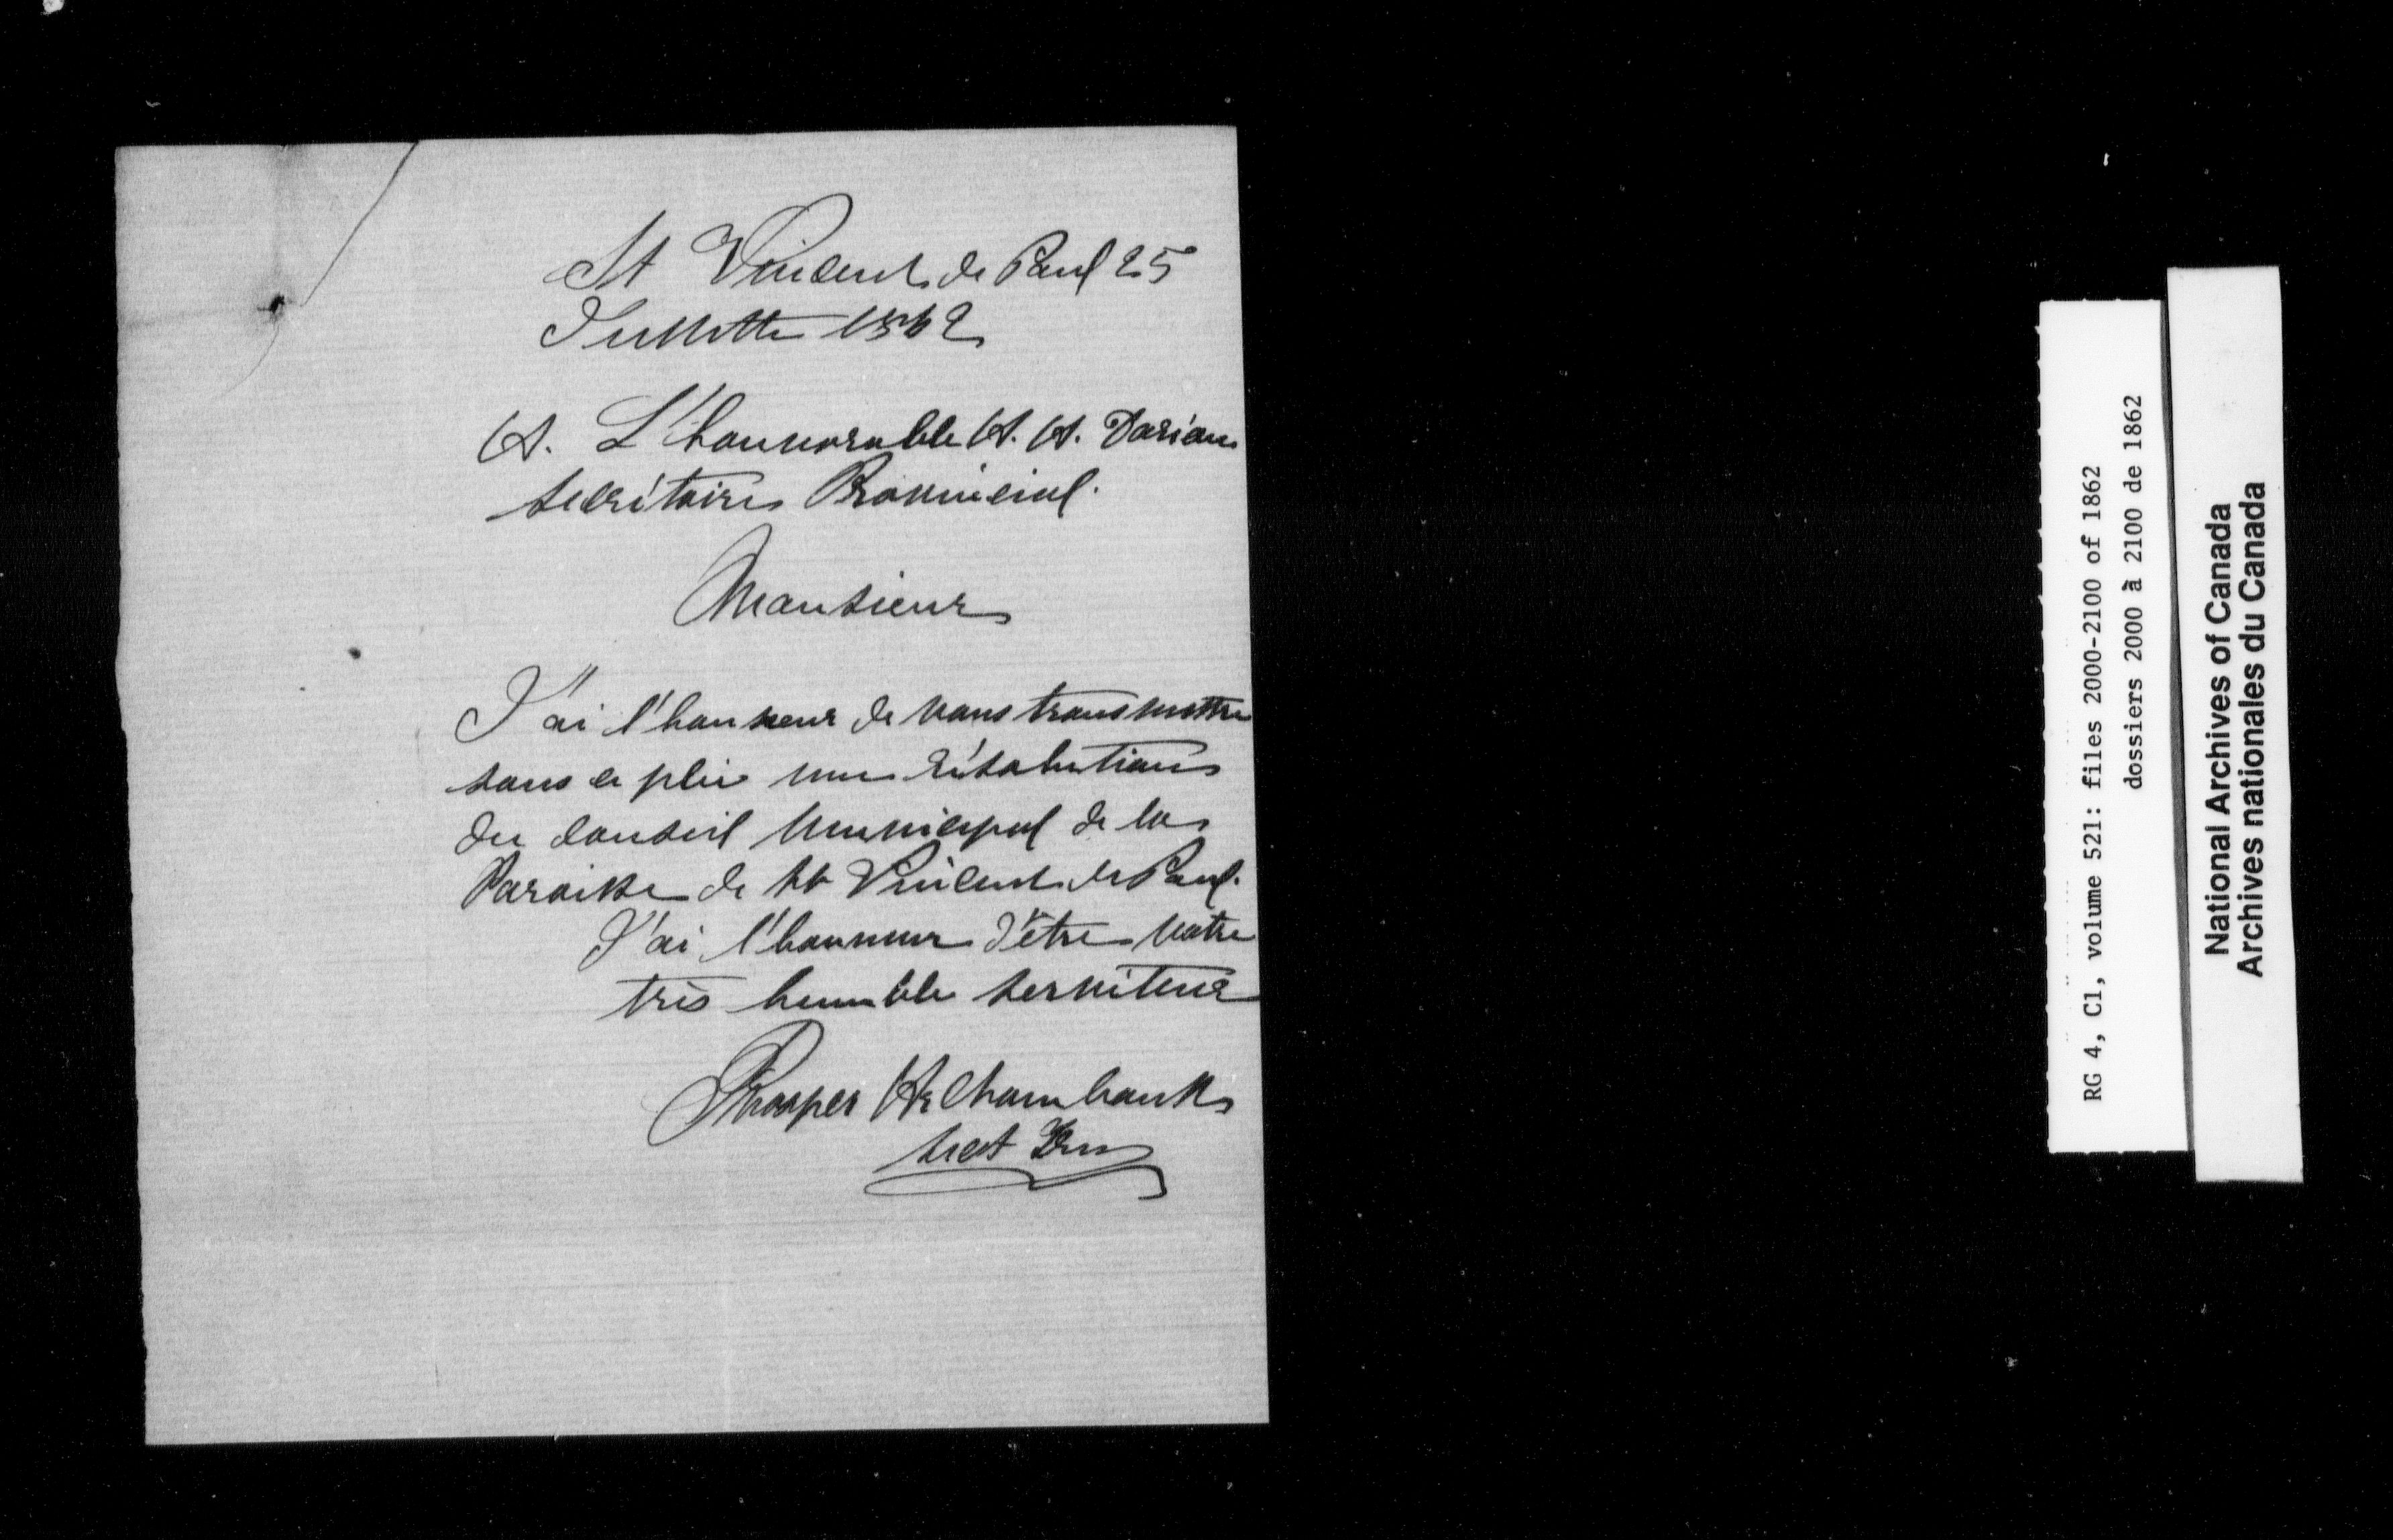 St Vincent de Paul 25
Juillette 1862
A. L'honnorable A. A. Dorion
Secrétaire Provincial.
Monsieur
J'ai l'honneur de vous transmettre
sous ce plie une résolution
du conseil Municipal de la
Paroisse de St Vincent de Paul.
J'ai l'honneur d'être votre
très humble serviteur
Prosper
Sect
RG 4, C1, volume 521: files 2000-2100 of 1862
dossiers 2000 à 2100 de 1862
National Archives of Canada
Archives nationales du Canada